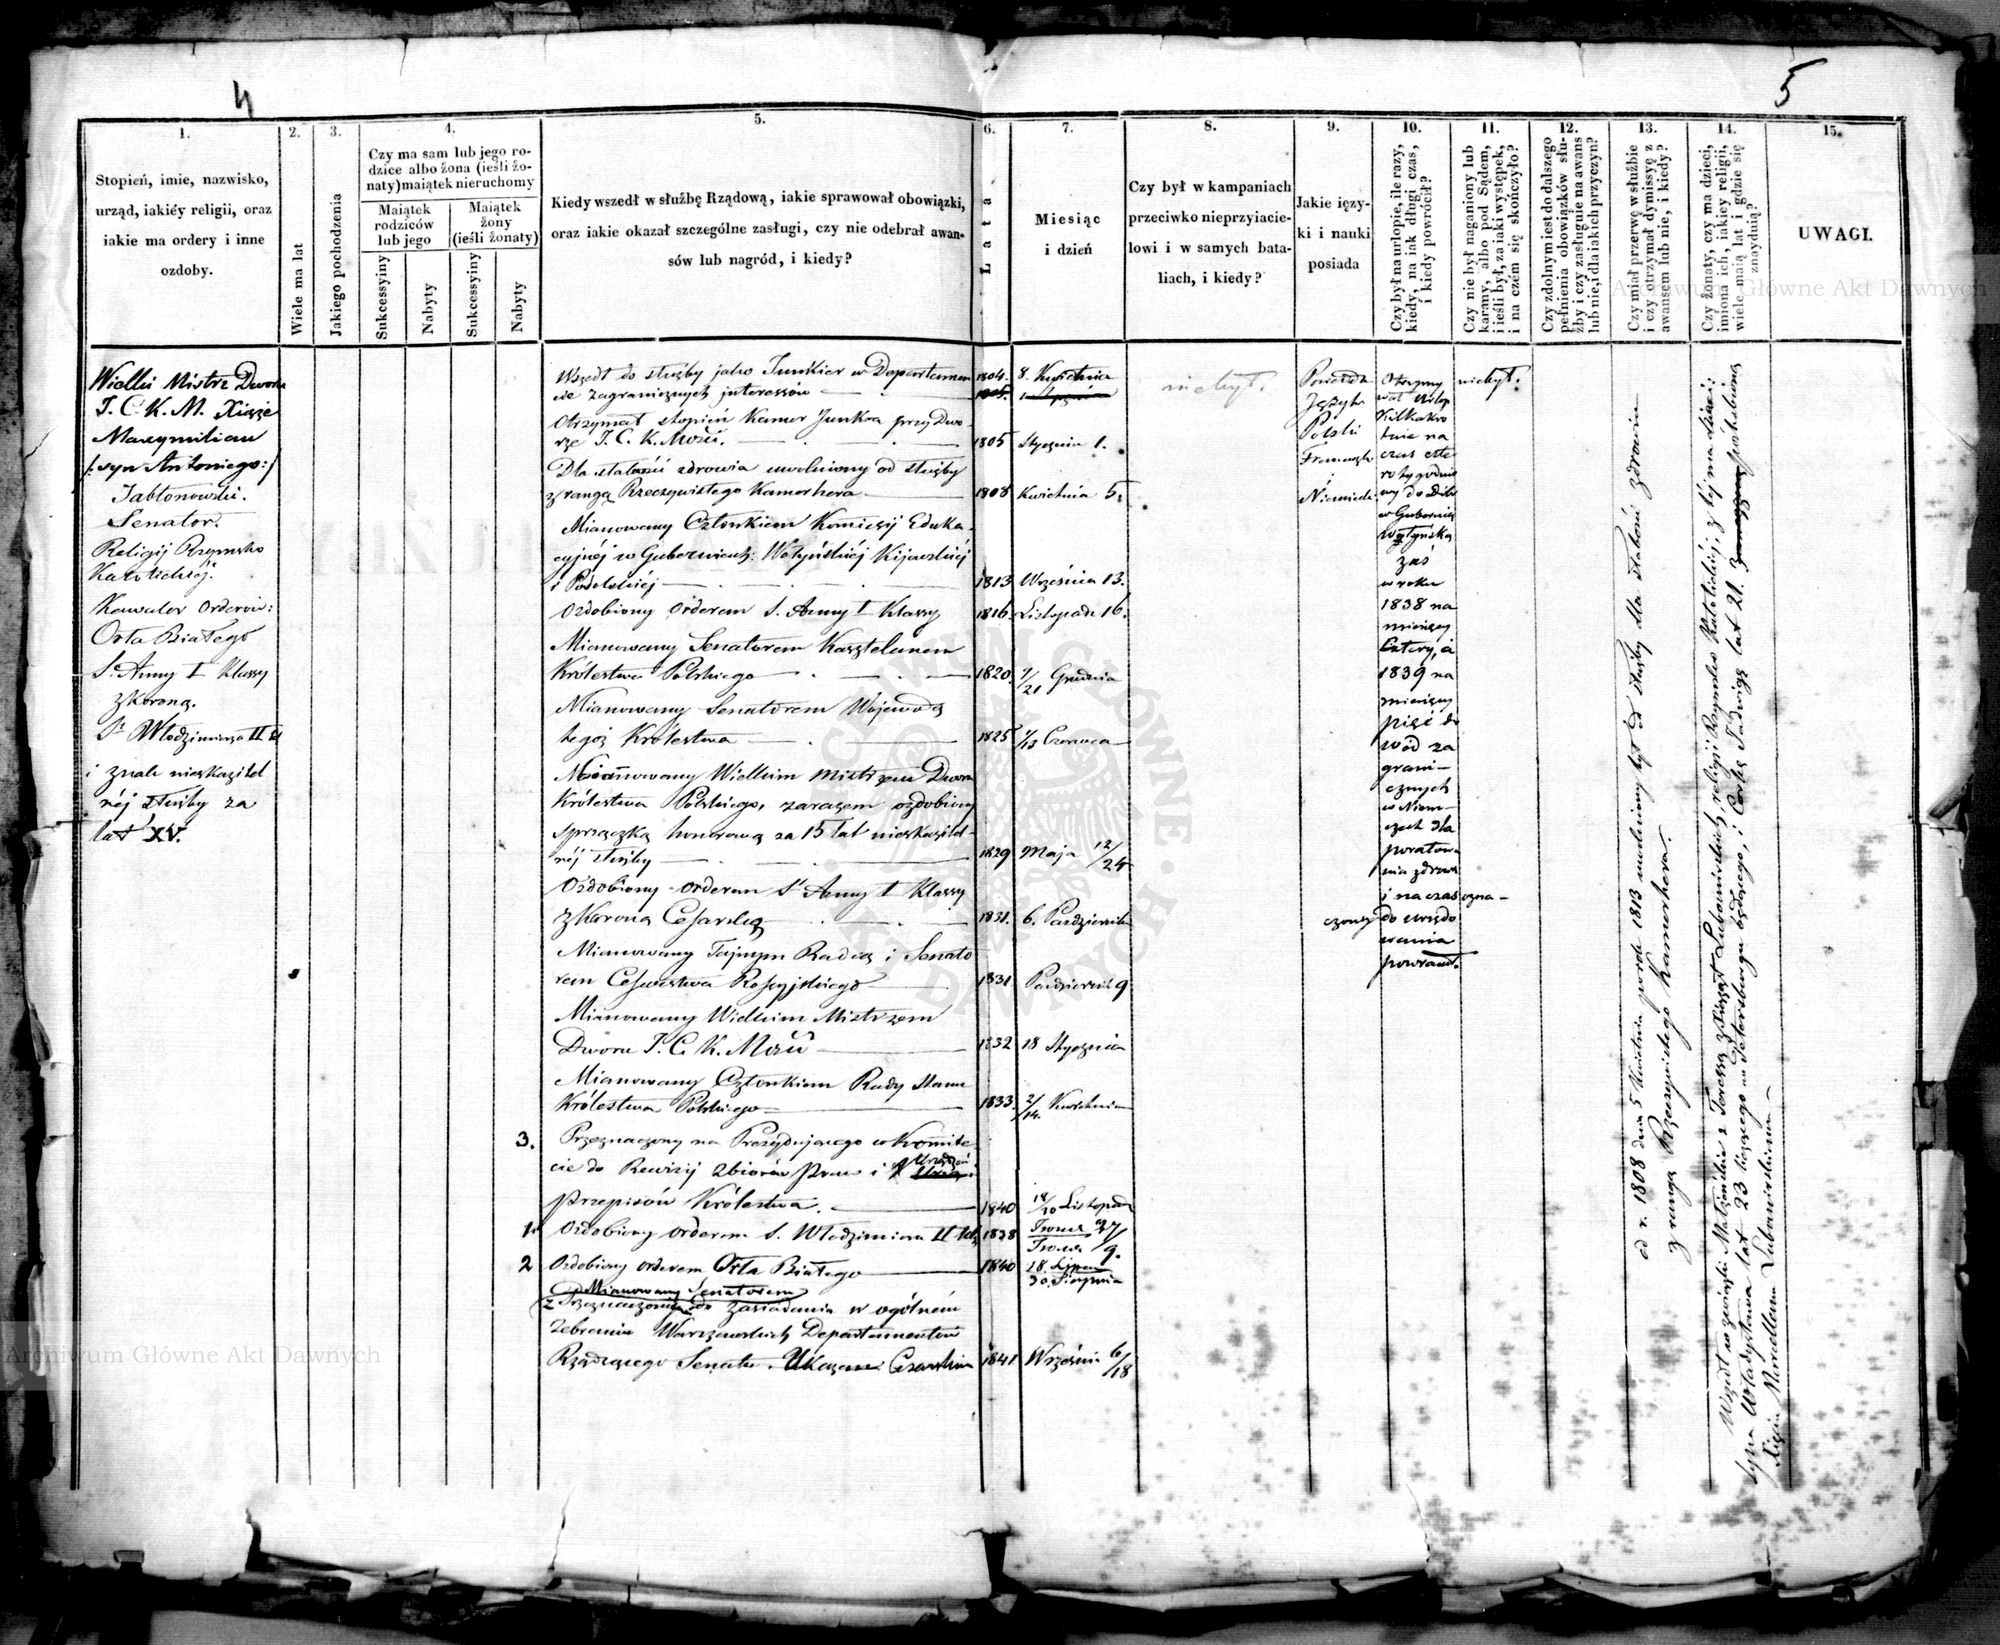 4
5
1.
Stopień, imie, nazwisko,
urząd, iakiéy religii, oraz
iakie ma ordery i inne
ozdoby.
2.
Wiele ma lat
3.
Jakiego pochodzenia
4.
Czy ma sam lub jego ro-
dzice albo żona (ieśli żo-
naty) maiątek nieruchomy
Maiątek
rodziców
lub jego
Maiątek
żony
(ieśli żonaty)
Sukcessyiny
Nabyty
Sukcessyiny
Nabyty
5.
Kiedy wszedł w służbę Rządową, iakie sprawował obowiązki,
oraz iakie okazał szczególne zasługi, czy nie odebrał awan-
sów lub nagród, i kiedy?
6.
Lata
7.
Miesiąc
i dzień
8.
Czy był w kampaniach
przeciwko nieprzyiacie-
lowi i w samych bata-
liach, i kiedy?
9.
Jakie ięzy-
ki i nauki
posiada
10.
Czy był na urlopie, ile razy,
kiedy, na iak długi czas,
i kiedy powrócił?
11.
Czy nie był naganiony lub
karany, albo pod Sądem,
i ieśli był, za iaki występek,
i na czém się skończyło?
12.
Czy zdolnym iest do dalszego
pełnienia obowiązków słu-
żby i czy zasługuie na awans
lub nie, i dla iakich przyczyn?
13.
Czy miał przerwę w służbie
i czy otrzymał dymissyę z
awansem lub nie, i kiedy?
14.
Czy żonaty, czy ma dzieci,
imiona ich, iakiey religii,
wiele maią lat i gdzie się
znayduią?
15.
UWAGI.
Wielki Mistrz Dworu
J. C. K. M. Xiąże
Maxymilian
/: syn Antoniego :/
Jabłonowski.
Senator.
Religij Rzymsko
Katolickiéj.
Kawaler Orderów:
Orła Białego
S. Anny I Klassy
z Koroną.
S. Włodzimierza II kl
i znak nieskazitel
néj służby za
lat XV.
Wszedł do służby jako Junkier w Departamen
cie zagranicznych interessów
1804. 8. Kwietnia
Otrzymał stopień Kamer Junkra przy Dwo-
rze J. C. K. Mości.
1805 Stycznia 1.
Dla słabości zdrowia uwolniony od służby
z rangą Rzeczywistego Kamerhera
1808 Kwietnia 5.
Mianowany Członkiem Komissyj Eduka-
cyjnéj w Guberniach: Wołyńskiéj Kijowskiéj
i Podolskiéj
1813 Września 13.
Ozdobiony Orderem S. Anny I Klassy
1816. Listopada 16.
Mianowany Senatorem Kasztelanem
Królestwa Polskiego
1820. 9/21 Grudnia
Mianowany Senatorem Wojewodą
tegoż Królestwa
1825 1/13 Czerwca
Mianowany Wielkim Mistrzem Dworu
Królestwa Polskiego, zarazem ozdobiony
sprzączką honorową za 15 lat nieskazitel-
néj służby
1829 Maja 12/24
Ozdobiony orderem S. Anny I Klassy
z Koroną Cesarską
1831. 6. Października
Mianowany Tajnym Radcą i Senato
rem Cesarstwa Rossyjskiego
1831 Październik 9
Mianowany Wielkim Mistrzem
Dworu J. C. K. Mości
1832 18 Stycznia
Mianowany Członkiem Rady Stanu
Królestwa Polskiego
1833. 2/14. Kwietnia
3. Przeznaczony na Prezydującego w Komite
cie do Rewizij zbiorów praw i Urządzeń
przepisów Królestwa.
1840 18/30 Listopada
1. Ozdobiony orderem S. Włodzimierza II kl
1838
2 Ozdobiony orderem Orła Białego
1840 18. Lipca
30. Sierpnia
Mianowany Senatorem
z Przeznaczeniem do zasiadania w ogólném
zebraniu Warszawskich Departamentów
Rządzącego Senatu. Ukazem Cesarskim
1841 Wrześniu 6/18
nie był.
Posiada
Języki
Polski
Francuzki
i
Niemiecki
Otrzymy
wał Urlop
Kilkakro
tnie na
czas czte
rotygodnio
wy do Dóbr
w Gubernią
Wołyńską
zaś
w roku
1838 na
miesięcy
Cztery, a
1839 na
miesięcy
pięć do
wód za
grani-
cznych
w Niem-
czech dla
poratowa
nia zdrowia
i na czas ozna-
czony do urzędo
wania
powrócił.
nie był.
od r. 1808 dnia 5 Kwietnia po rok 1813 uwolniony był od służby dla słabości zdrowia
z rangą Rzeczywistego Kamerhera.
Wszedł w związki Małżeńskie z Teressą z Xiążąt Lubomirskich, religij Rzymsko Katolickiéj, z téj ma dzieci:
syna Władysława lat 23 liczącego w Petersburgu będącego, i Córkę Jadwigę lat 21. poślubioną
Xięciu Marcellemu Lubomirskiemu
Archiwum Główne Akt Dawnych
Archiwum Główne Akt Dawnych
ARCHIWUM GŁÓWNE AKT DAWNYCH